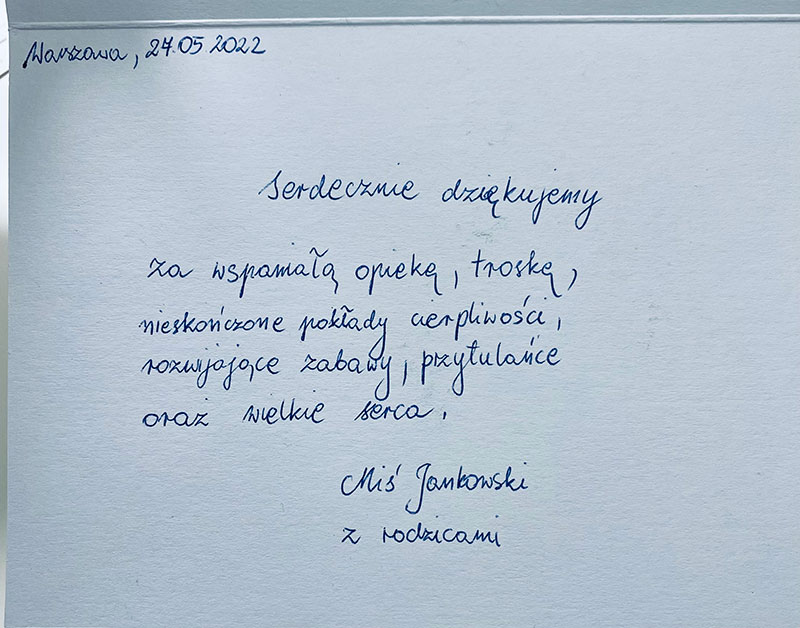 Warszawa, 27.05.2022
Serdecznie dziękujemy
za wspaniałą opiekę, troskę,
nieskończone pokłady cierpliwości,
rozwijające zabawy, przytulańce
oraz wielkie serca.
Miś Jankowski
z rodzicami